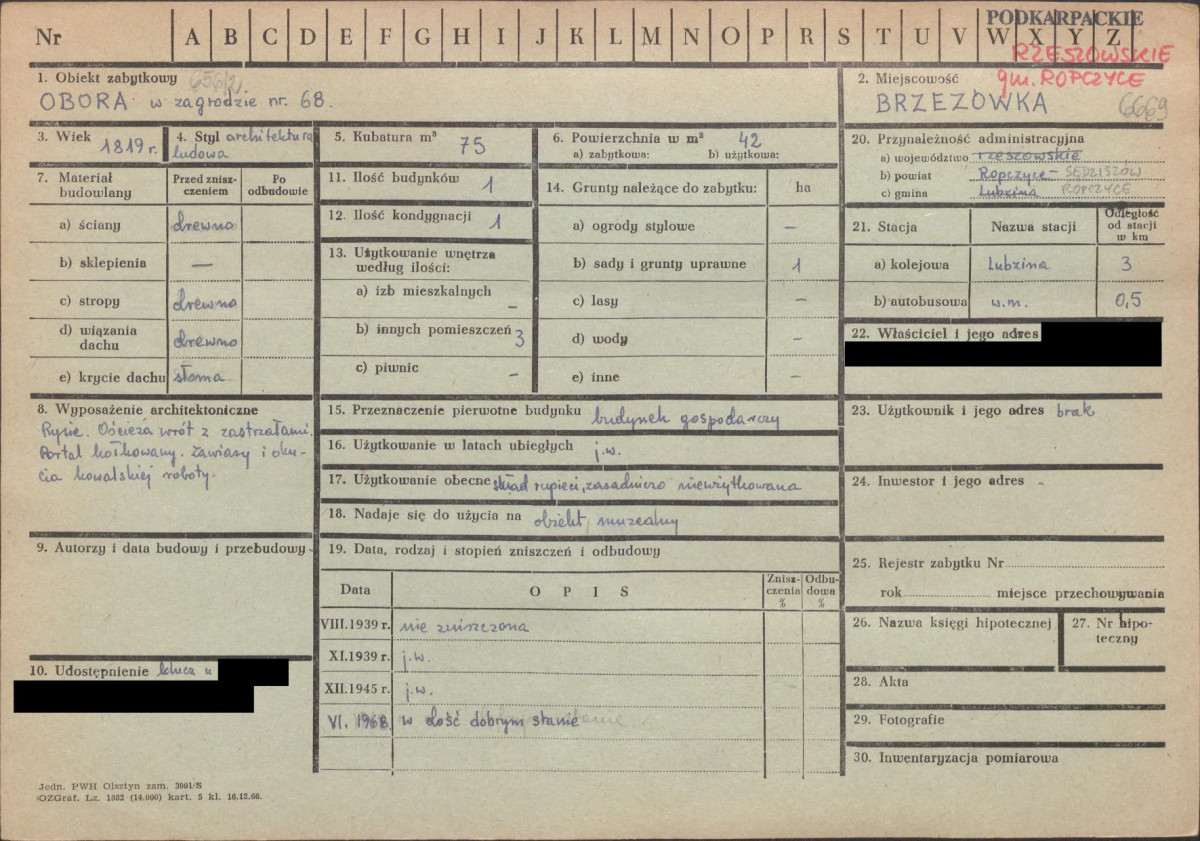 PODKARPACKIE
Nr A B C D E F G H I J K L M N O P R S T U V W X Y Z
RZESZOWSKIE
gm. ROPCZYCE
1. Obiekt zabytkowy 656/2
OBORA w zagrodzie nr. 68.
2. Miejscowość
BRZEZÓWKA 6669
3. Wiek 1819 r.
4. Styl architektura
ludowa
5. Kubatura m³ 75
6. Powierzchnia w m² 42
a) zabytkowa: b) użytkowa:
7. Materiał
budowlany
Przed znisz-
czeniem
Po
odbudowie
a) ściany drewno
b) sklepienia —
c) stropy drewno
d) wiązania
dachu drewno
e) krycie dachu słoma
8. Wyposażenie architektoniczne
Rysie. Ościeża wrót z zastrzałami.
Portal kołkowany. Zawiasy i oku-
cia kowalskiej roboty.
9. Autorzy i data budowy i przebudowy -
10. Udostępnienie klucz u
11. Ilość budynków 1
12. Ilość kondygnacji 1
13. Użytkowanie wnętrza
według ilości:
a) izb mieszkalnych –
b) innych pomieszczeń 3
c) piwnic –
14. Grunty należące do zabytku: ha
a) ogrody stylowe –
b) sady i grunty uprawne 1
c) lasy –
d) wody –
e) inne –
15. Przeznaczenie pierwotne budynku budynek gospodarczy
16. Użytkowanie w latach ubiegłych j.w.
17. Użytkowanie obecne skład rupieci, zasadniczo nieużytkowana
18. Nadaje się do użycia na obiekt muzealny
19. Data, rodzaj i stopień zniszczeń i odbudowy
Data O P I S Znisz-
czenia
% Odbu-
dowa
%
VIII.1939 r. nie zniszczona
XI.1939 r. j.w.
XII.1945 r. j.w.
VI. 1968 w dość dobrym stanie
20. Przynależność administracyjna
a) województwo rzeszowskie
b) powiat Ropczyce – SĘDZISZÓW
c) gmina Lubzina ROPCZYCE
21. Stacja Nazwa stacji Odległość
od stacji
w km
a) kolejowa Lubzina 3
b) autobusowa w.m. 0,5
22. Właściciel i jego adres
23. Użytkownik i jego adres brak
24. Inwestor i jego adres -
25. Rejestr zabytku Nr
rok miejsce przechowywania
26. Nazwa księgi hipotecznej
27. Nr hipo-
teczny
28. Akta
29. Fotografie
30. Inwentaryzacja pomiarowa
Jedn. PWH Olsztyn zam. 3991/S
OZGraf. Lz. 1883 (14.000) kart. 5 kl. 16.12.66.